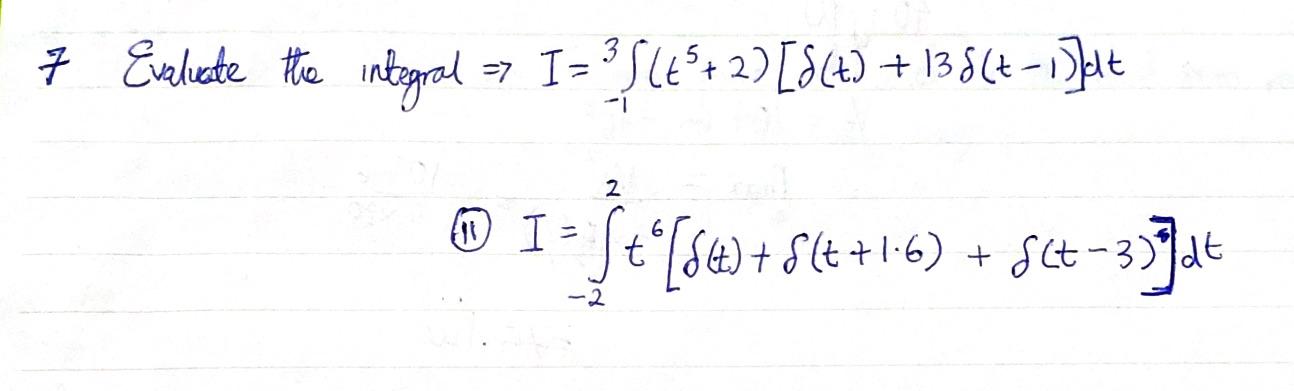 7 Evaluate the integral ⇒ I = ³∫₋₁ (t⁵ + 2) [δ(t) + 13 δ(t − 1)] dt
(ii) I = ∫₋₂² t⁶ [δ(t) + δ(t + 1·6) + δ(t − 3)] dt